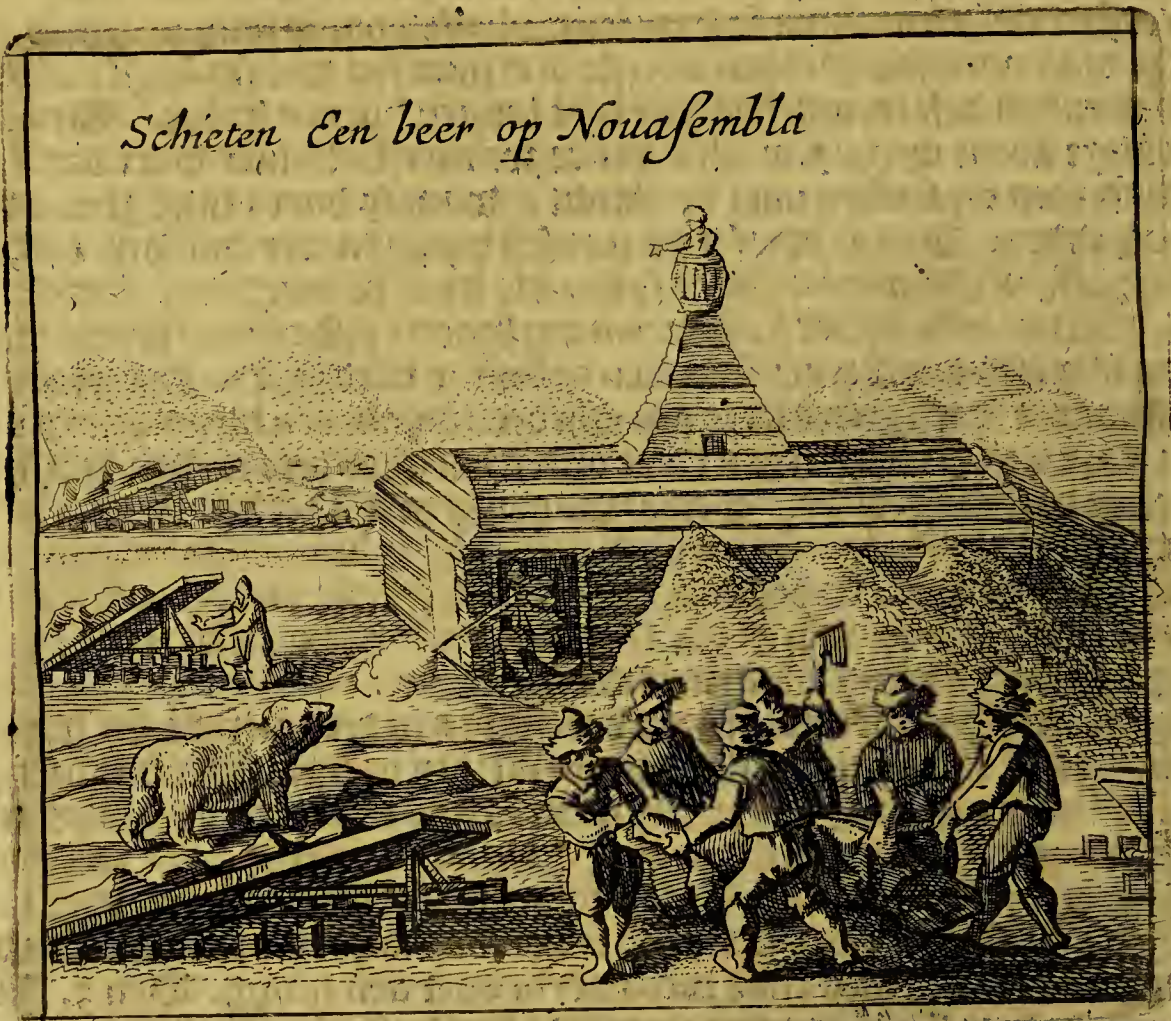 Schieten Een beer op Nouaſembla